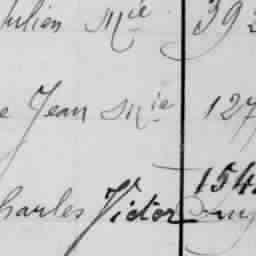 Julien Mie 392
e Jean Mie 127
154
Charles Victor